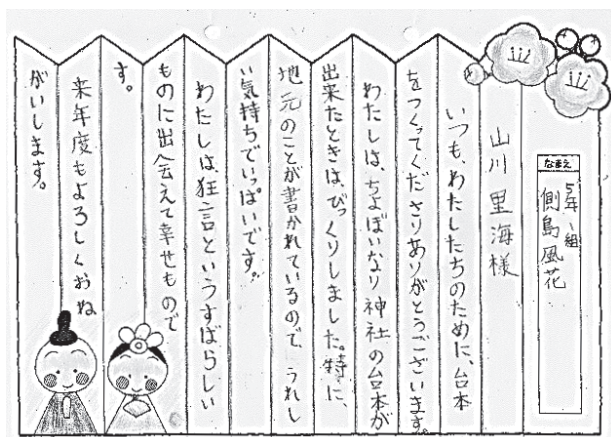 なまえ
5年一組
側島風花
山川里海様
いつも、わたしたちのために、台本
をつくってくださりありがとうございます。
わたしは、ちょぼいなり神社の台本が
出来たときは、びっくりしました。特に、
地元のことが書かれているので、うれし
い気持ちでいっぱいです。
わたしは、狂言というすばらしい
ものに出会えて幸せもので
す。
来年度もよろしくおね
がいします。